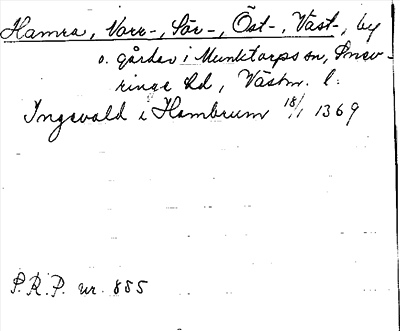 Hamra, Norr-, Sör-, Öst-, Väst-, by
o. gårdar i Munktorps sn, Snev-
ringe hd, Västm. l.
Ingevald i Hambrum 18/1 1369
S.R.P. nr. 855